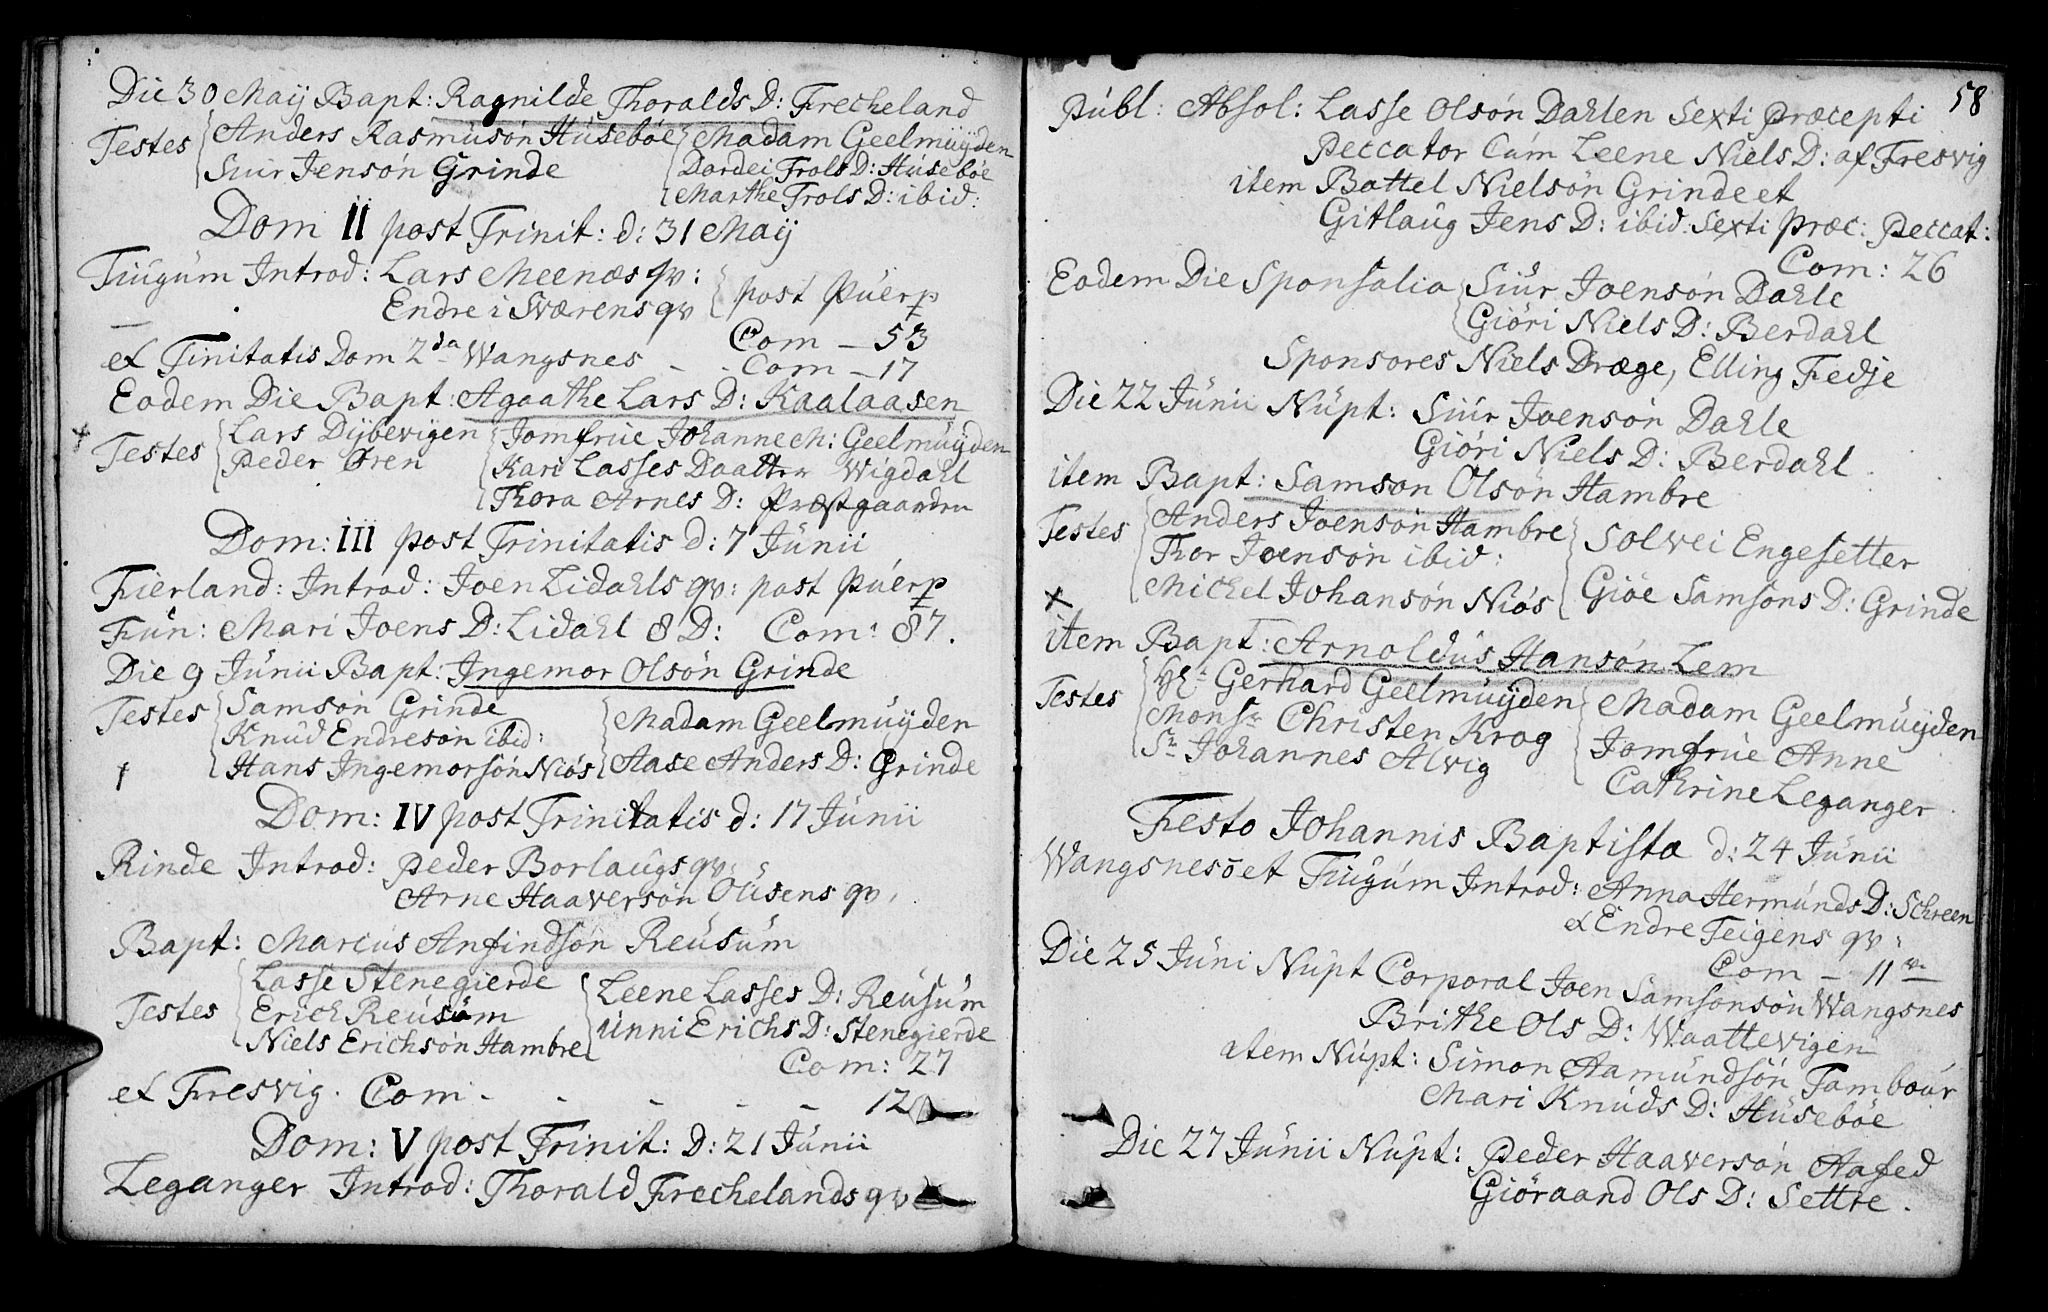 Die 30 Maij Bapt: Ragnilde Thoralds D: Frecheland
Testes Anders Rasmusøn Husebøe Madam Geelmuÿden
Siur Jensøn Grinde Dordei Trols D: Husebøe
Marthe Trols D: ibid:
Dom II post Trinit: d: 31 Maij
Tiugum Introd: Lars Meenæs qv:
Endre i Sværens qv post Puerp
Com — 53
et Tinitatis Dom 2da Wangsnes - - Com — 17
Eodem Die Bapt: Agaathe Lars D: Kaalaasen
Testes Lars Dÿbevigen Jomfrue Johanne M: Geelmuÿden
Peder Øren Kari Lasses Daatter Wigdahl
Thora Arnes D: Præstgaarden
Dom: III post Trinitatis d: 7 Junii
Fierland: Introd: Joen Lidahls qv: post Puerp
Fun: Mari Joens D: Lidahl 8 D: Com: 87.
Die 9 Junii Bapt: Ingemor Olsøn Grinde
Testes Samsøn Grinde Madam Geelmuÿden
Knud Endresøn ibid:
Hans Ingemorsøn Niøs Aase Anders D: Grinde
Dom: IV post Trinitatis d: 17 Junii
Rinde Introd: Peder Borlaugs qv:
Arne Haaversøn Ousens qv.
Bapt: Marcus Anfindsøn Reusum
Lasse Stenegierde Leene Lasses D: Reusum
Testes Erich Reusum Unni Erichs D: Stenegierde
Niels Erichsøn Hambre
Com: 27
et Fresvig. Com - - - - - 12
Dom: V post Trinit: D: 21 Junii
Leganger Introd: Thorald Frechelands qv
58
Publ: Absol: Lasse Olsøn Dahlen Sexti Præcepti
Peccator Cum Leene Niels D: af Fresvig
item Battel Nielsøn Grinde et
Gitlaug Jens D: ibid: Sexti Præc: Peccat:
Com: 26
Eodem Die Sponsalia Siur Joensøn Dahle
Giøri Niels D: Berdahl
Sponsores Niels Dræge, Elling Fedje
Die 22 Junii Nupt: Siur Joensøn Dahle
Giøri Niels D: Berdahl
item Bapt: Samson Olsøn Hambre
Testes Anders Joensøn Hambre Solvei Engesetter
Thor Joensøn ibid:
Michel Johansøn Niøs Giøe Samsons D: Grinde
item Bapt: Arnoldus Hansøn Lem
Testes Hr: Gerhard Geelmuÿden Madam Geelmuÿden
Monsr Christen Krog Jomfrue Anne
Sr Johannes Alvig Cathrine Leganger
Festo Johannis Baptista d: 24 Junii
Wangsnes et Tiugum Introd: Anna Hermunds D: Schreen
et Endre Teigens qv:
Com — 11
Die 25 Juni Nupt Corporal Joen Samsonsøn Wangsnes
Brithe Ols D: Waattevigen
item Nupt: Simon Aamundsøn Tambour
Mari Knuds D: Husebøe
Die 27 Junii Nupt: Peder Haaversøn Aafed
Giøraand Ols D: Settre.